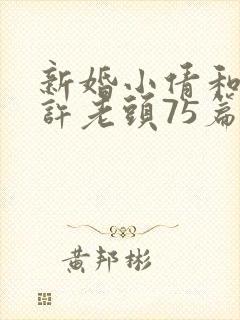 新婚小倩和
許老頭75篇
黄邦彬